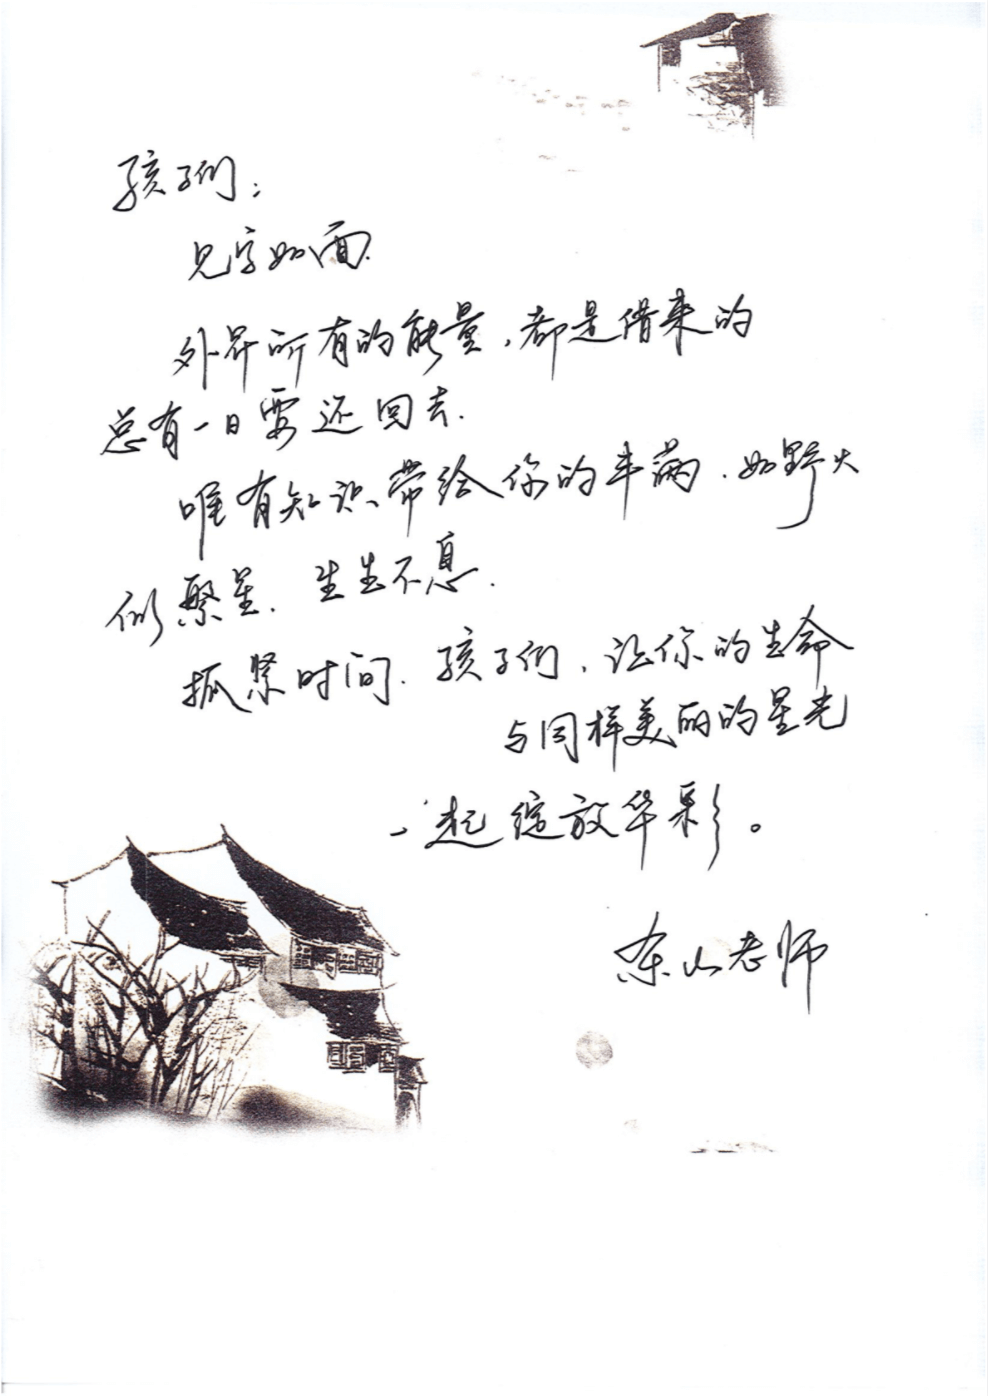 孩子们：
见字如面.
外界所有的能量,都是借来的
总有一日要还回去.
唯有知识带给你的丰满.如野火
似繁星.生生不息.
抓紧时间.孩子们,让你的生命
与同样美丽的星光
一起绽放华彩。
山老师